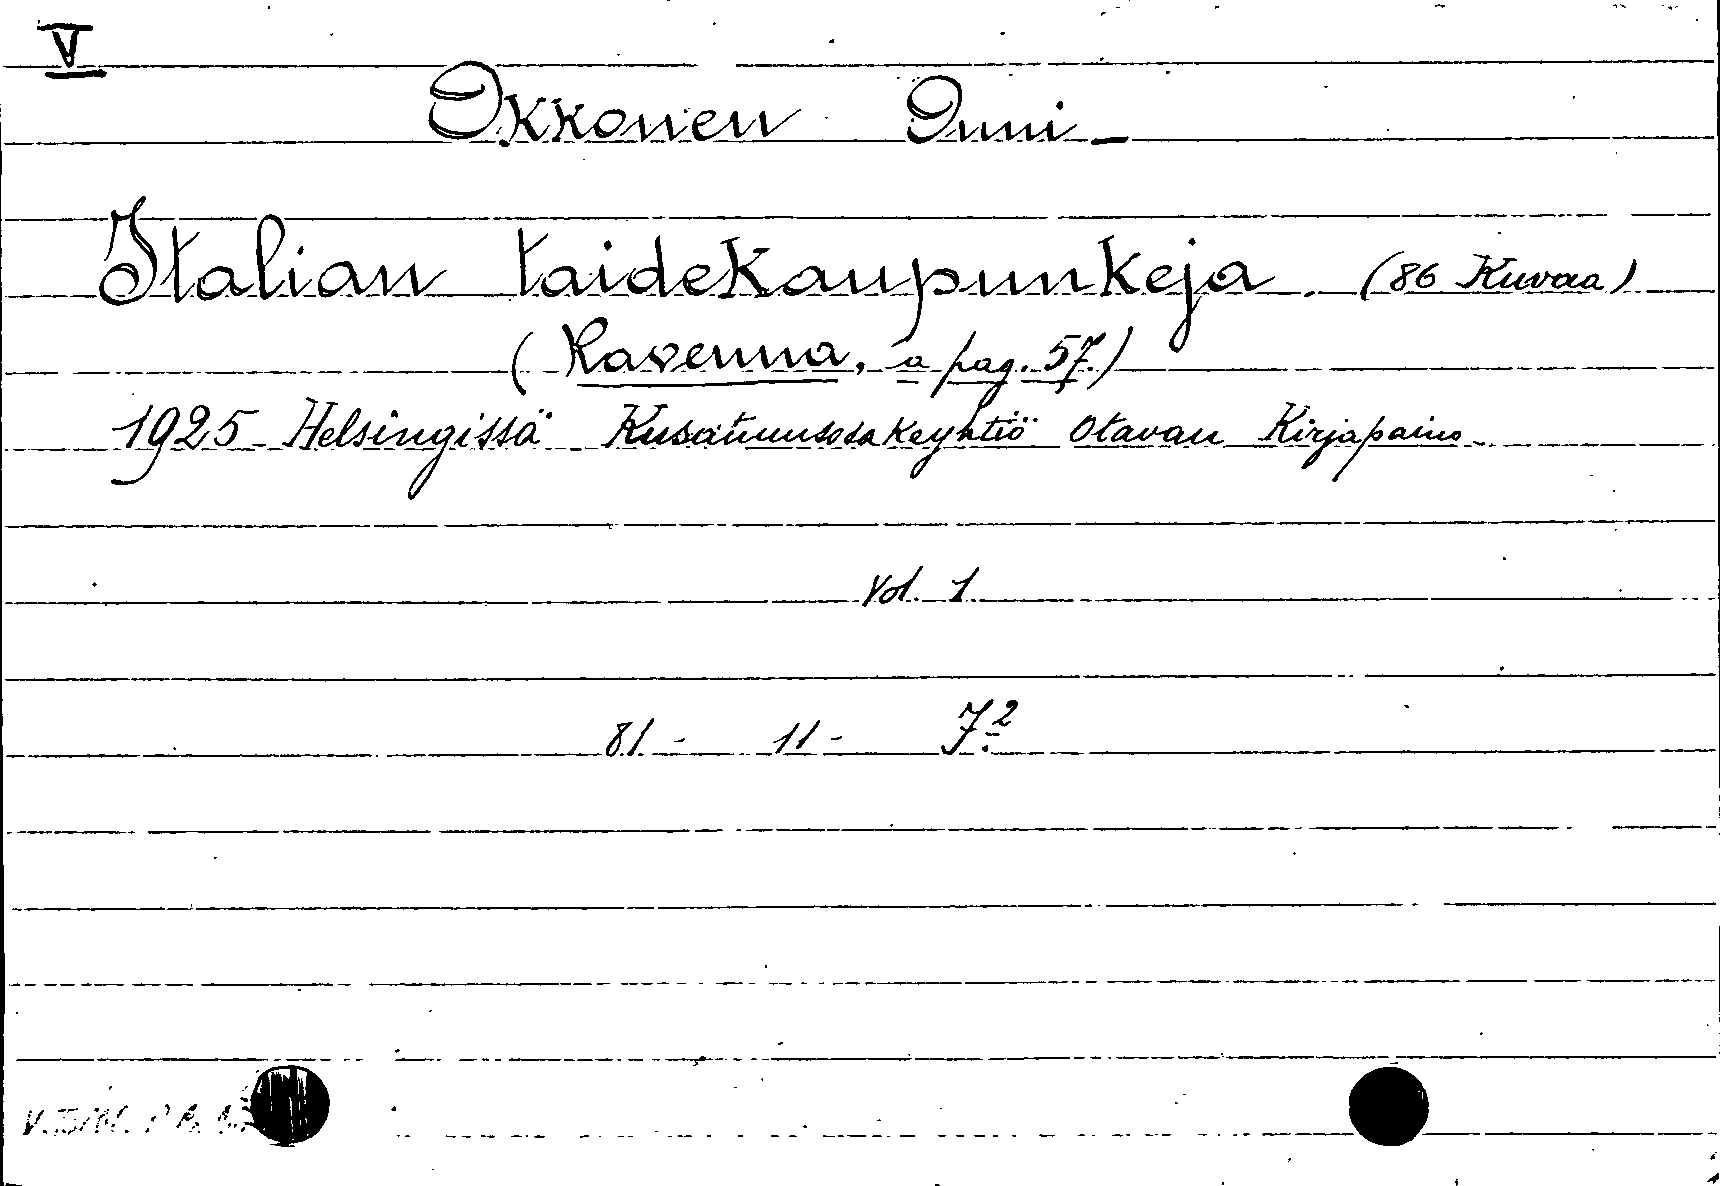 V
Okkonen Onni_
Italian taidekaupunkeja. (86 Kuvaa)
(Ravenna, a pag. 57.)
1925_ Helsingissä Kusatuusosakeyhtiö Otavan Kirjapaino_
Vol. 1
81 - 11 - 7.2